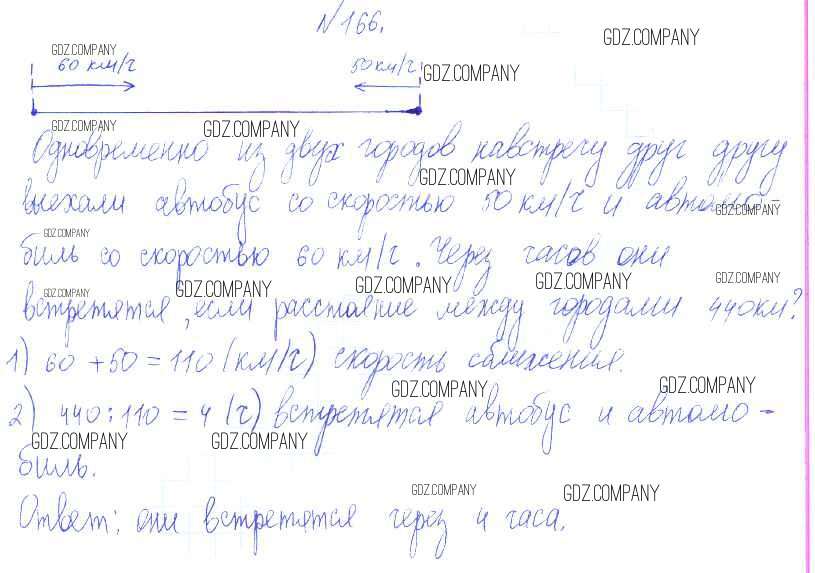 №166.
GDZ.COMPANY
GDZ.COMPANY
60 км/ч 50 км/ч GDZ.COMPANY
GDZ.COMPANY GDZ.COMPANY
Одновременно из двух городов навстречу друг другу
GDZ.COMPANY
выехали автобус со скоростью 50 км/ч и автомо-
GDZ.COMPANY
GDZ.COMPANY
биль со скоростью 60 км/ч. Через часов они
GDZ.COMPANY GDZ.COMPANY GDZ.COMPANY GDZ.COMPANY GDZ.COMPANY
встретятся, если расстояние между городами 440км?
1) 60 + 50 = 110 (км/ч) скорость сближения.
GDZ.COMPANY GDZ.COMPANY
2) 440 : 110 = 4 (ч) встретятся автобус и автомо-
GDZ.COMPANY GDZ.COMPANY
биль.
GDZ.COMPANY GDZ.COMPANY
Ответ: они встретятся через 4 часа.